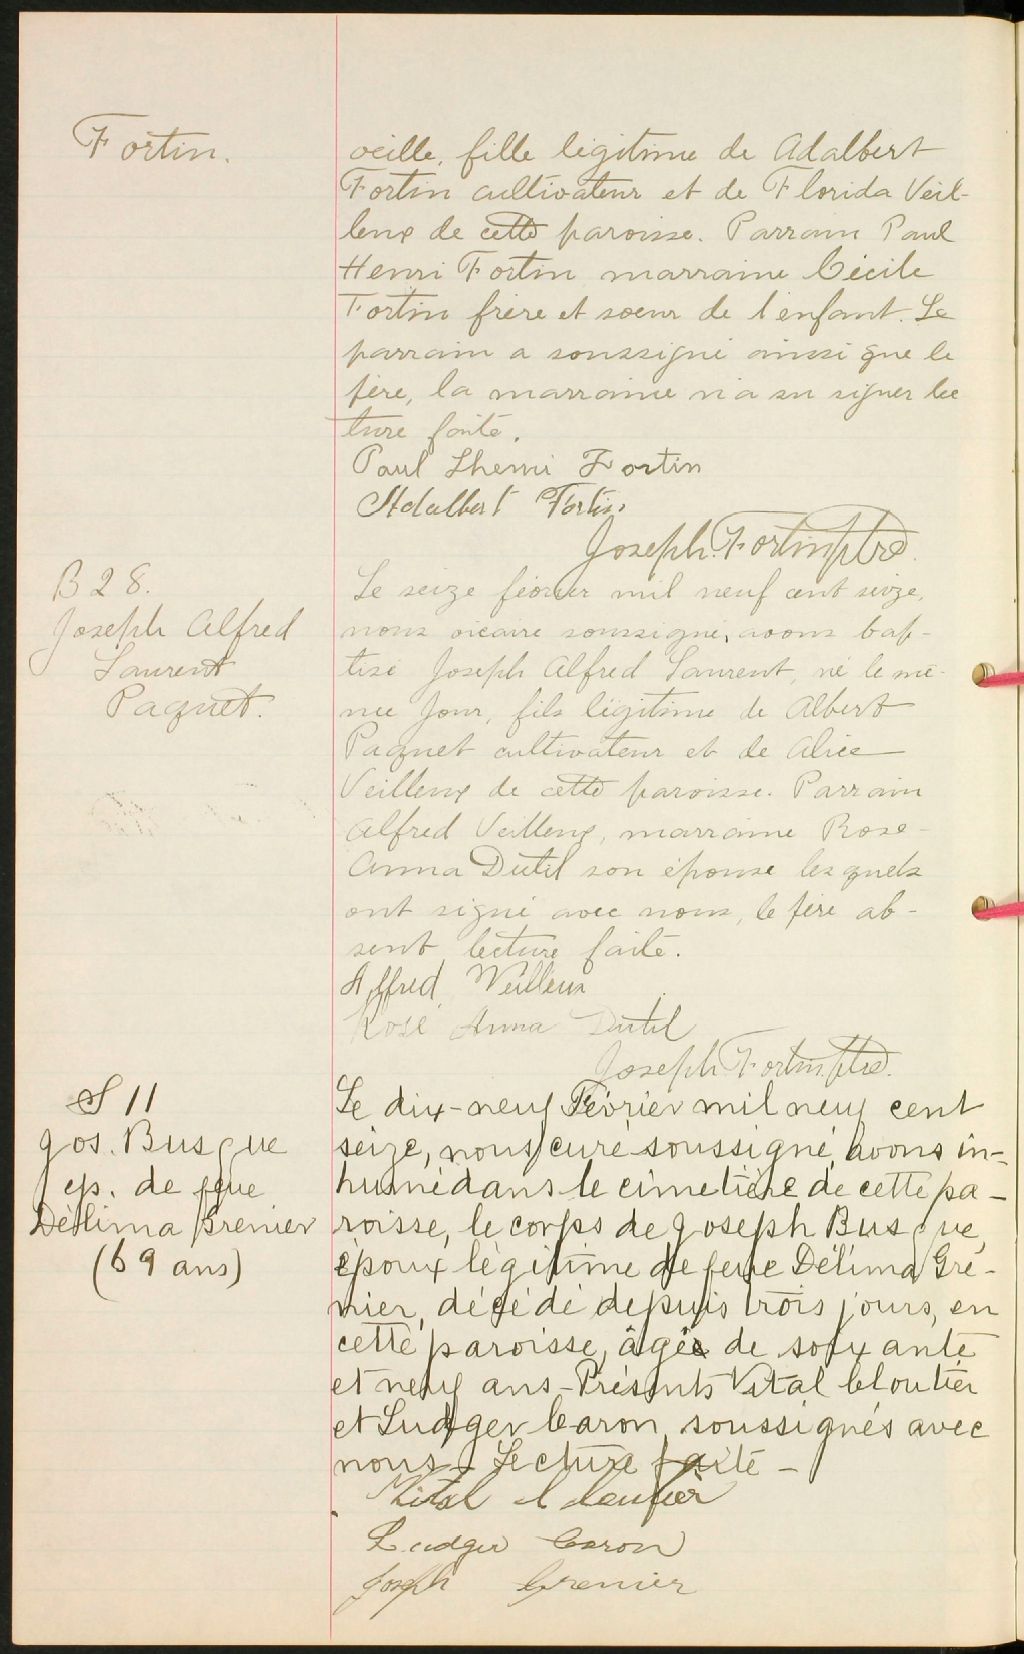 Fortin.
veille, fille légitime de Adalbert
Fortin cultivateur et de Florida Veil-
leux de cette paroisse. Parrain Paul
Henri Fortin marraine Cécile
Fortin frère et soeur de l'enfant. Le
parrain a soussigné ainsi que le
père, la marraine n'a su signer lec
ture faite.
Paul Henri Fortin
Adalbert Fortin
Joseph Fortin ptre.
B 28.
Joseph Alfred
Laurent
Paquet.
Le seize février mil neuf cent seize,
nous vicaire soussigné, avons bap-
tisé Joseph Alfred Laurent, né le mê-
me jour, fils légitime de Albert
Paquet cultivateur et de Alice
Veilleux de cette paroisse. Parrain
Alfred Veilleux, marraine Rose-
Anna Dutil son épouse lesquels
ont signé avec nous, le père ab-
sent, lecture faite.
Alfred Veilleux
Rose Anna Dutil
Joseph Fortin ptre.
S 11
Jos. Busque
ép. de feue
Délima Grenier
(69 ans)
Le dix-neuf Février mil neuf cent
seize, nous curé soussigné, avons in-
humé dans le cimetière de cette pa-
roisse, le corps de Joseph Busque,
époux légitime de feue Délima Gre-
nier, décédé depuis trois jours, en
cette paroisse, âgé de soixante
et neuf ans - Présents Vital Cloutier
et Ludger Caron, soussignés avec
nous - Lecture faite -
Vital Cloutier
Ludger Caron
Joseph Grenier